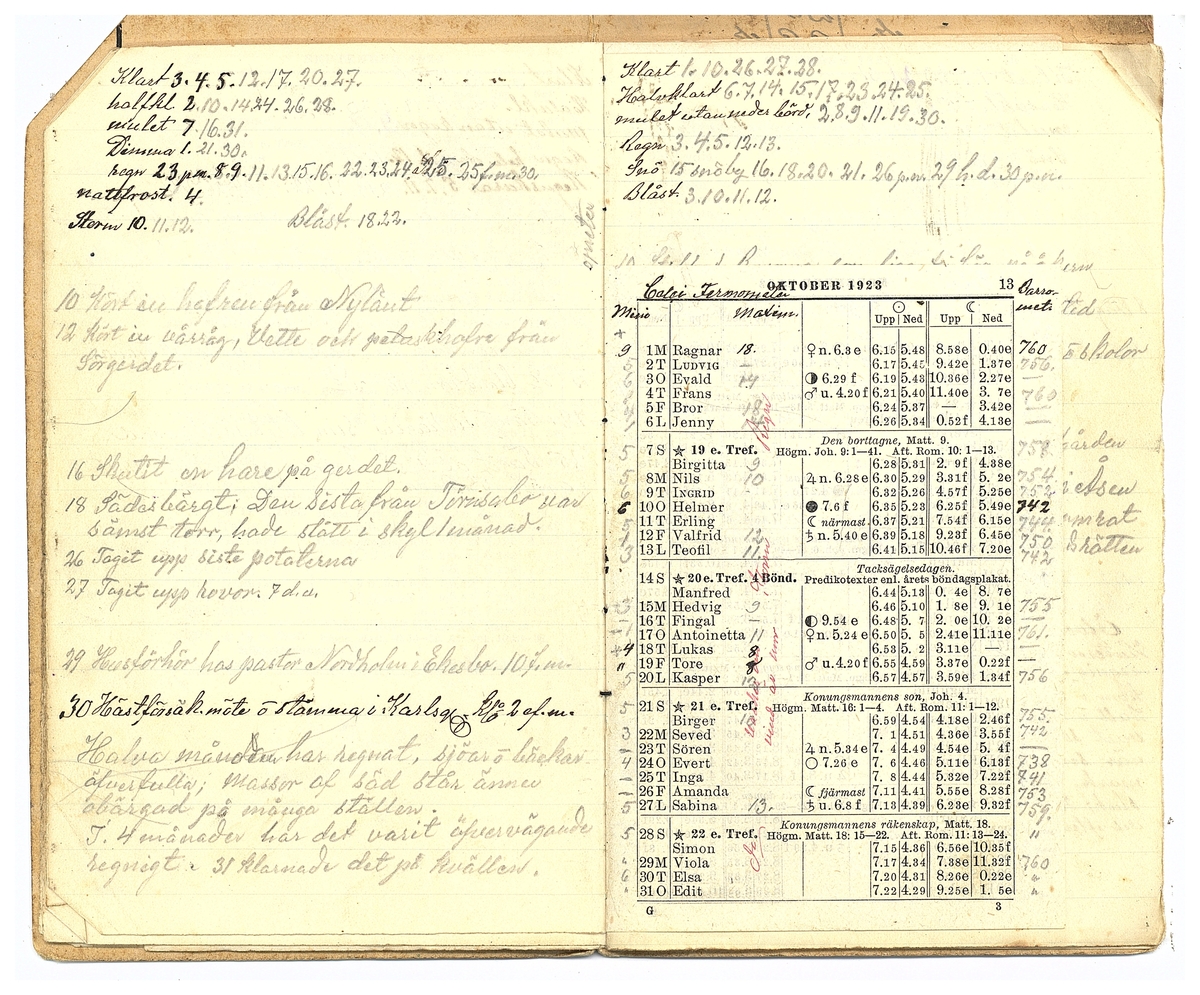 Klart 3. 4. 5. 12. 17. 20. 27.
halfkl 2. 10. 14 24. 26. 28.
mulet 7. 16. 31.
Dimma 1. 21. 30.
regn 23 pm. 8. 9. 11. 13. 15. 16. 22. 23. 24. 25. 25 f.m. 30.
nattfrost. 4.
Storm 10. 11. 12. Blåst. 18. 22.
10 Kört in hafren från Nylänt
12 Kört in vårråg, Vette och potaskhafre från
Sörgerdet.
16 Skutit en hare på gerdet.
18 Sädesbärgt; Den sista från var
sämst torr, hade stått i skyl 1 månad.
26 Tagit upp siste potaterna
27 Tagit upp rovor. 7 d.v.
29 Husförhör hos pastor Nordholm i Ekesbo. 10 f.m.
30 Hästförsäk. möte o stämma i Karlsg. 2 ef.m.
Halva månaden har regnat, sjöar o bäckar
äfverfulla; Massor af säd står ännu
obärgad på många ställen.
I. 4 månader har det varit äfvervägande
regnigt. 31 klarnade det på kvällen.
Klart 1. 10. 26. 27. 28.
Halvklart 6. 7. 14. 15. 17. 23. 24. 25.
mulet utan nederbörd, 2. 8. 9. 11. 19. 30.
Regn 3. 4. 5. 12. 13.
Snö 15 snöby 16. 18. 20. 21. 26 p.m. 29 h.d. 30 p.m.
Blåst. 3. 10. 11. 12.
OKTOBER 1923 13
Celci Termometer Barro-
Mini Maxim. met.
Upp Ned Upp Ned
9 1 M Ragnar 18. ♀ n. 6.3 e 6.15 5.48 8.58e 0.40e 760
2 T LUDVIG — 6.17 5.45 9.42e 1.37e 756.
3 O Evald 14 ◑ 6.29 f 6.19 5.43 10.36e 2.27e —
4 T Frans ♂ u. 4.20 f 6.21 5.40 11.40e 3. 7e 760
5 F Bror 6.24 5.37 — 3.42e —
6 L Jenny 6.26 5.34 0.52f 4.13e —
Den borttagne, Matt. 9.
5 7 S ★ 19 e. Tref. Högm. Joh. 9: 1—41. Aft. Rom. 10: 1—13. 758
Birgitta 9 6.28 5.31 2. 9f 4.38e
5 8 M Nils 10 ♃ n. 6.28 e 6.30 5.29 3.31f 5. 2e 754
6 9 T INGRID 6.32 5.26 4.57f 5.25e 752
6 10 O Helmer ● 7.6 f 6.35 5.23 6.25f 5.49e 742
11 T Erling ☾ närmast. 6.37 5.21 7.54f 6.15e 744
12 F Valfrid 12 ♄ n. 5.40 e 6.39 5.18 9.23f 6.45e 750
3 13 L Teofil 11 6.41 5.15 10.46f 7.20e 742
Tacksägelsedagen.
14 S ★ 20 e. Tref. 4 Bönd. Predikotexter enl. årets böndagsplakat.
Manfred 6.44 5.13 0. 4e 8. 7e
15 M Hedvig 9 6.46 5.10 1. 8e 9. 1e 755
16 T Fingal ◐ 9.54 e 6.48 5. 7 2. 0e 10. 2e —
17 O Antoinetta 11 ♀ n. 5.24 e 6.50 5. 5 2.41e 11.11e 761.
4 18 T Lukas 8 6.53 5. 2 3.11e — —
" 19 F Tore 8 ♂ u. 4.20 f 6.55 4.59 3.37e 0.22f —
5 20 L Kasper 6.57 4.57 3.59e 1.34f 756
Konungsmannens son, Joh. 4.
5 21 S ★ 21 e. Tref. Högm. Matt. 16: 1—4. Aft. Rom. 11: 1—12. 755.
Birger 6.59 4.54 4.18e 2.46f
3 22 M Seved 7. 1 4.51 4.36e 3.55f 742
— 23 T Sören ♃ n. 5.34 e 7. 4 4.49 4.54e 5. 4f —
4 24 O Evert ○ 7.26 e 7. 6 4.46 5.11e 6.13f 738
— 25 T Inga 7. 8 4.44 5.32e 7.22f 741
— 26 F Amanda ☾ fjärmast 7.11 4.41 5.55e 8.28f 753
5 27 L Sabina 13. ♄ u. 6.8 f 7.13 4.39 6.23e 9.32f 759.
Konungsmannens räkenskap, Matt. 18.
5 28 S ★ 22 e. Tref. Högm. Matt. 18: 15—22. Aft. Rom. 11: 13—24. "
Simon 7.15 4.36 6.56e 10.35f
29 M Viola 7.17 4.34 7.38e 11.32f 760
6 30 T Elsa 7.20 4.31 8.26e 0.22e "
31 O Edit 7.22 4.29 9.25e 1. 5e "
G 3